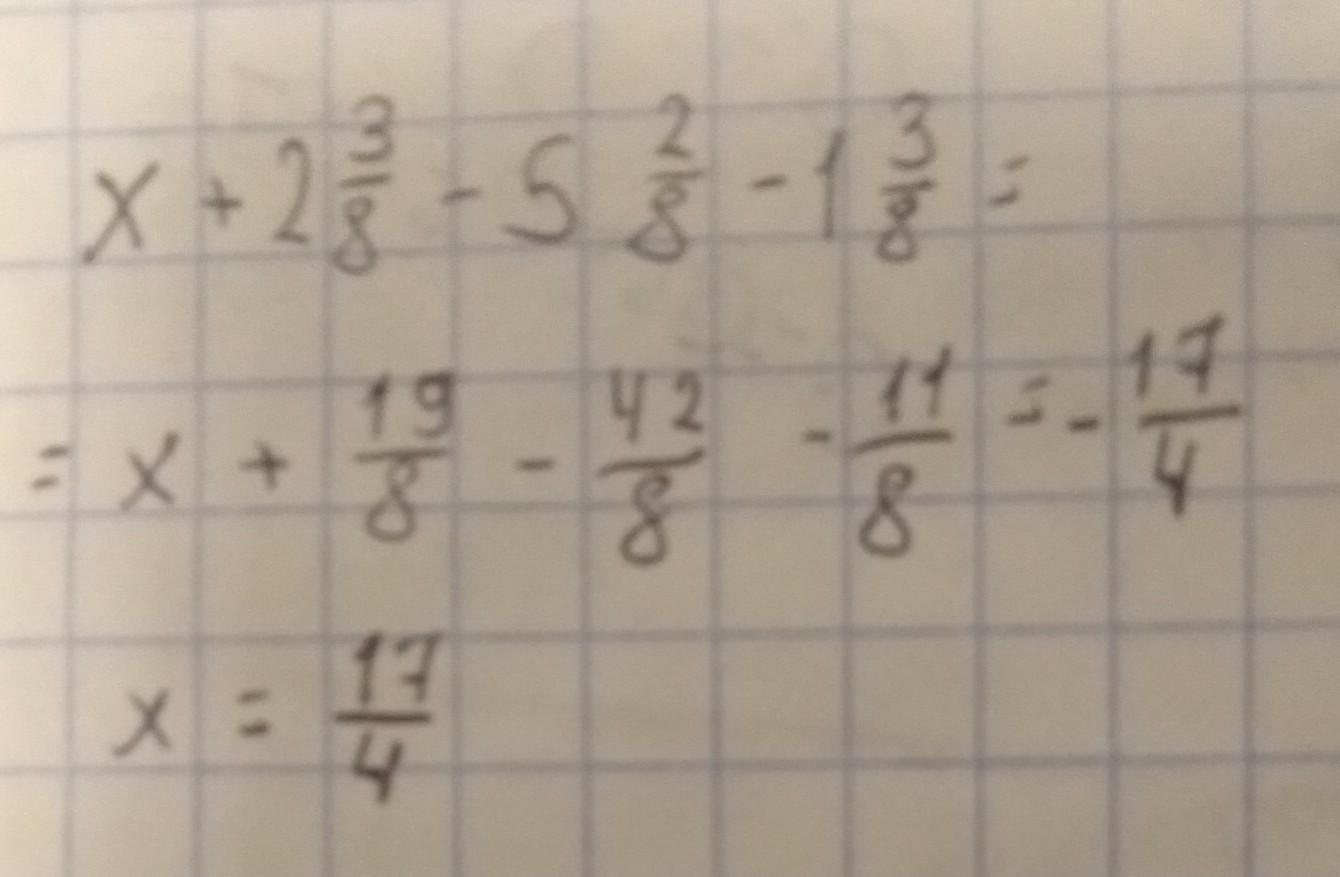 x + 2 3/8 - 5 2/8 - 1 3/8 =
= x + 19/8 - 42/8 - 11/8 = - 17/4
x = 17/4